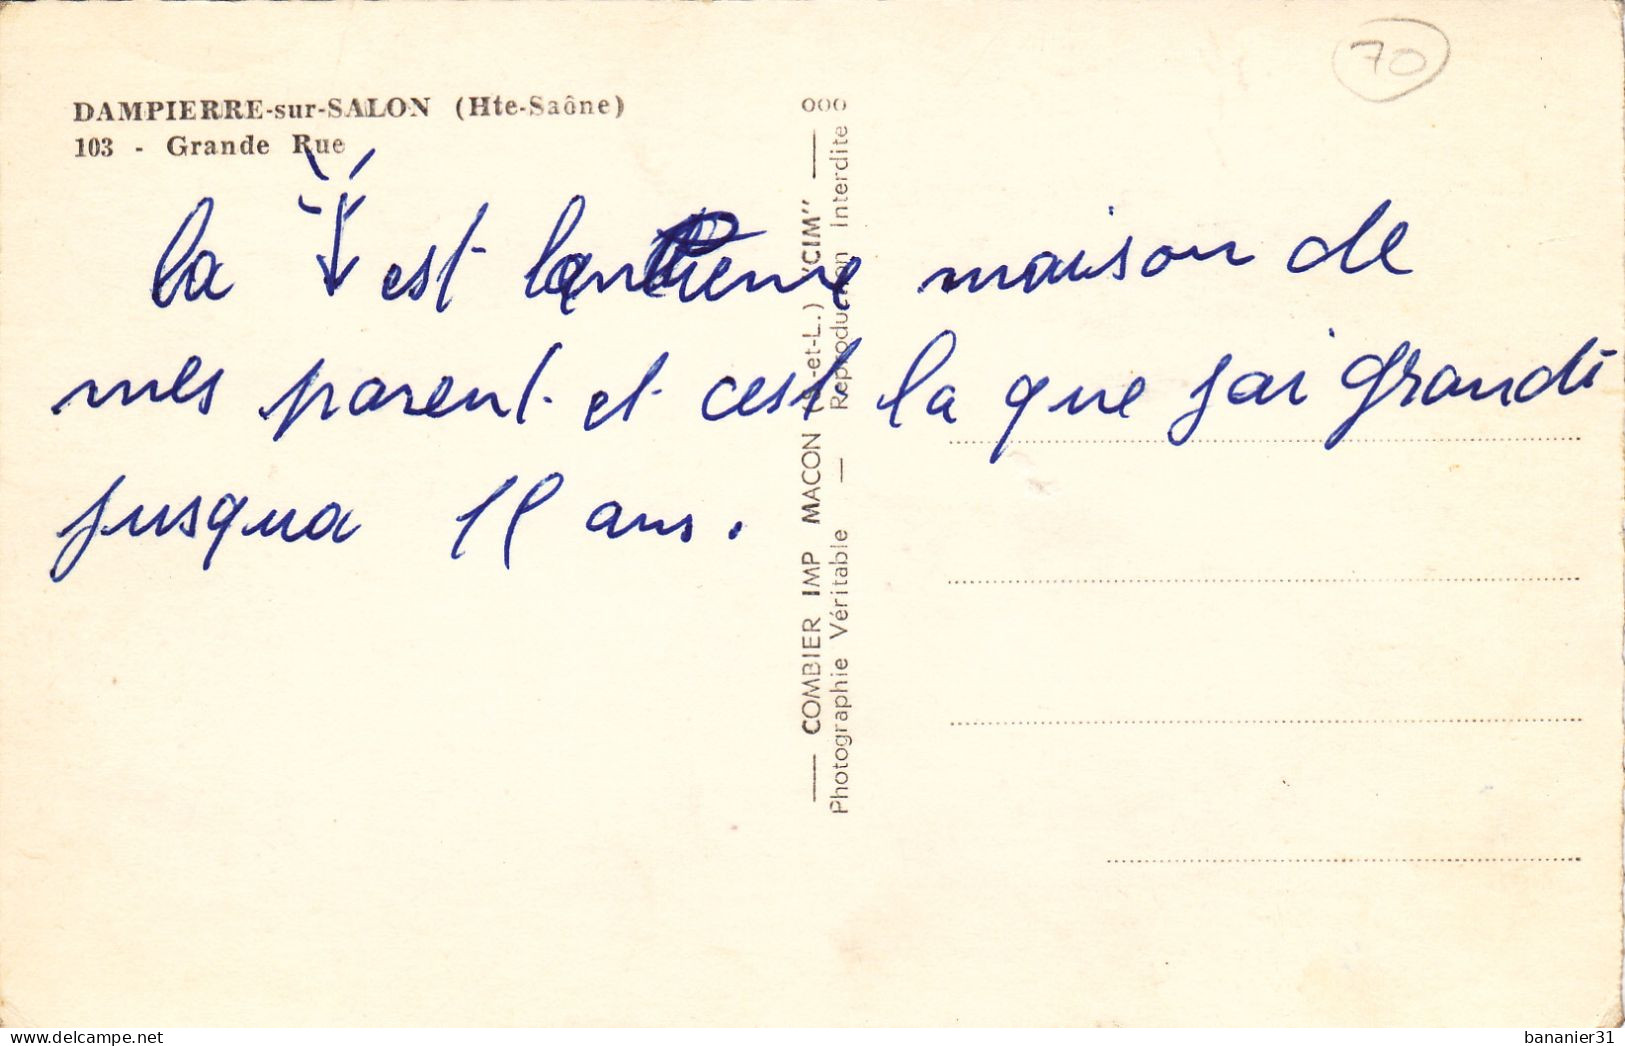 70
DAMPIERRE-sur-SALON (Hte-Saône)
103 - Grande Rue
la ↓ est maison de
mes parent et cest la que jai grandi
jusqua ans.
COMBIER IMP MACON (S.-et-L.) "CIM"
Photographie Véritable — Reproduction Interdite
delcampe.net
bananier31